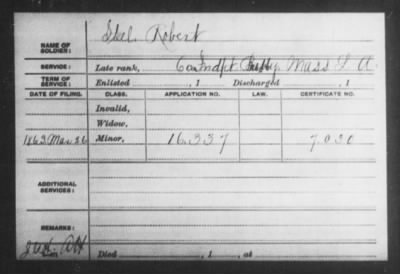 NAME OF SOLDIER: Robert
SERVICE: Late rank, Indpt Mass L A.
TERM OF SERVICE: Enlisted , 1 Discharged , 1
DATE OF FILING. CLASS. APPLICATION NO. LAW. CERTIFICATE NO.
Invalid,
Widow,
1863 Mar 26 Minor, 16.337 7.030
ADDITIONAL SERVICES:
REMARKS:
Died , 1 , at